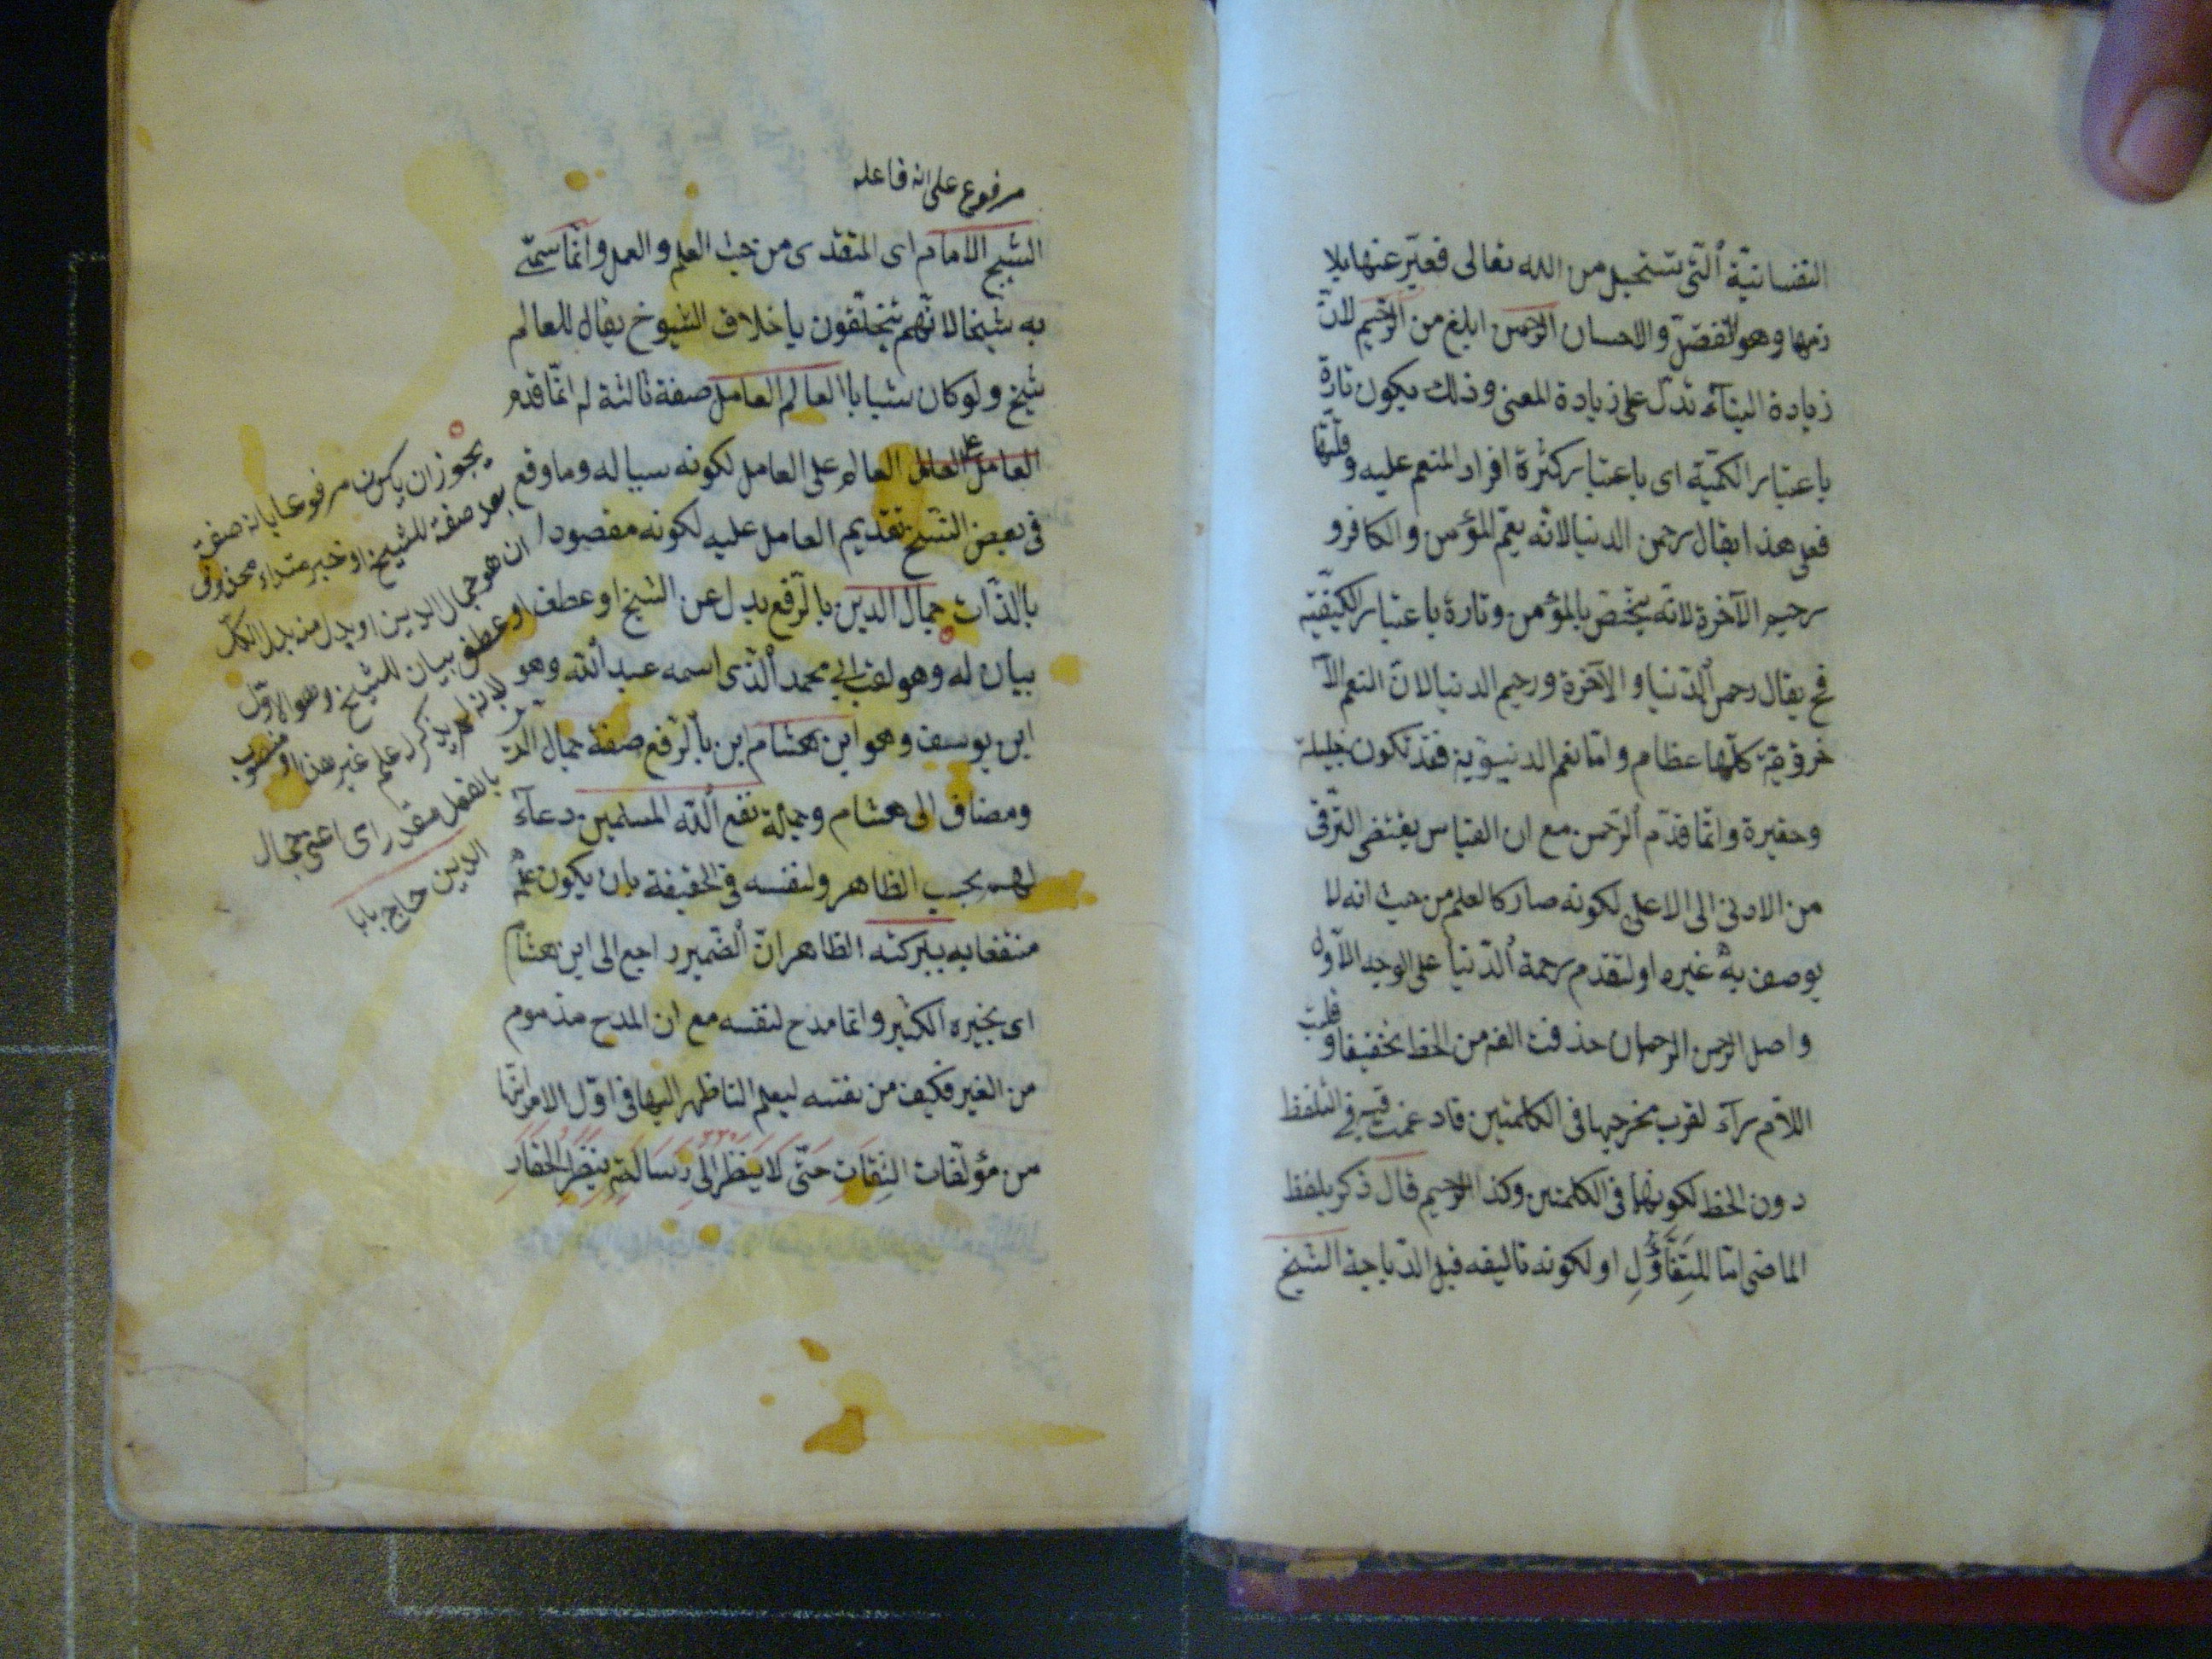 النفسانيّة ألّتي تستحيل من الله تعالى فعبّر عنها بلا
زمها وهو التفضّل والاحسان الرّحمن ابلغ من الرّحيم لانّ
زيادة البنآء تدلّ على زيادة المعنى وذلك يكون تارة
باعتبار الكمّيّة اى باعتبار كثرة افراد المنعم عليه وقلّتها
فعلى هذا يقال رحمن الدنيا لانّه يعمّ المؤمن والكافر و
رحيم الآخرة لانّه يختصّ بالمؤمن وتارة باعتبار الكيفيّة
فح يقال رحمن ألدّنيا والآخرة ورحيم الدنيا لانّ النعم الآ
خرويّة كلّها عظام وامّا نعم الدنيويّة فقد تكون جليلة
وحقيرة وانّما قدّم ألرّحمن مع ان القياس يقتضى التّرقى
من الادنى الى الاعلى لكونه صار كالعلم من حيث انه لا
يوصف به غيره او لتقدم رحمة ألدّنيا على الوجه الآول
واصل الرحمن الرحمان حذفت الفه من الخط تخفيفا وقلبت
اللّام رآء لقرب مخرجها فى الكلمتين فادغمت فيه في التلفظ
دون الخط لكونهما فى الكلمتين وكذا الرّحيم قال ذكر بلفظ
الماضى امّا للتفاؤل او لكونه تأليفه قبل الدّيباجة الشيخ
مرفوع على انه فاعله
الشيخ الامام اى المقتدى من حيث العلم والعمل وانّما سمّى
به شيخا لانّهم يتخلّقون باخلاق الشيوخ يقال للعالم
شيخ ولو كان شيابا العالم العامل صفة ثالثة له انّما قدم
العامل العالم على العامل لكونه سببا له وما وقع
فى بعض النّسخ تقديم العامل عليه لكونه مقصودا
بالذّات جمال الدين بالرّفع بدل عن الشيخ او عطف
بيان له وهو لقب ابى محمد ألّذى اسمه عبد الله وهو
ابن يوسف وهو ابن هشام ابن بالرّفع صفة جمال الدّين
ومضاف الى هشام وجملة نفع ألله المسلمين دعآء
لهم بحسب الظاهر ولنفسه فى الحقيقة بان يكون علمه
منتفعا به ببركته الظاهر انّ ألضّمير راجع الى ابن هشام
اى بخيره الكثير وانّما مدح لنفسه مع ان المدح مذموم
من الغير فكيف من نفسه ليعلم الناظر اليها فى اوّل الامر انّها
من مؤلّفات الثِقاتِ حتّى لا ينظر الى رسالته بنظر الحقارة
يجوز ان يكون مرفوعا بانه صفة
بعد صفة للشيخ او خبر مبتداء محذوف
ان هو جمال الدين او بدل منه بدل الكلّ
او عطف بيان للشيخ وهو الاوّل
لانه لم يذكر له علم غير هذا او منصوب
بالفعل مقدر اى اعنى جمال
الدين حاج بابا